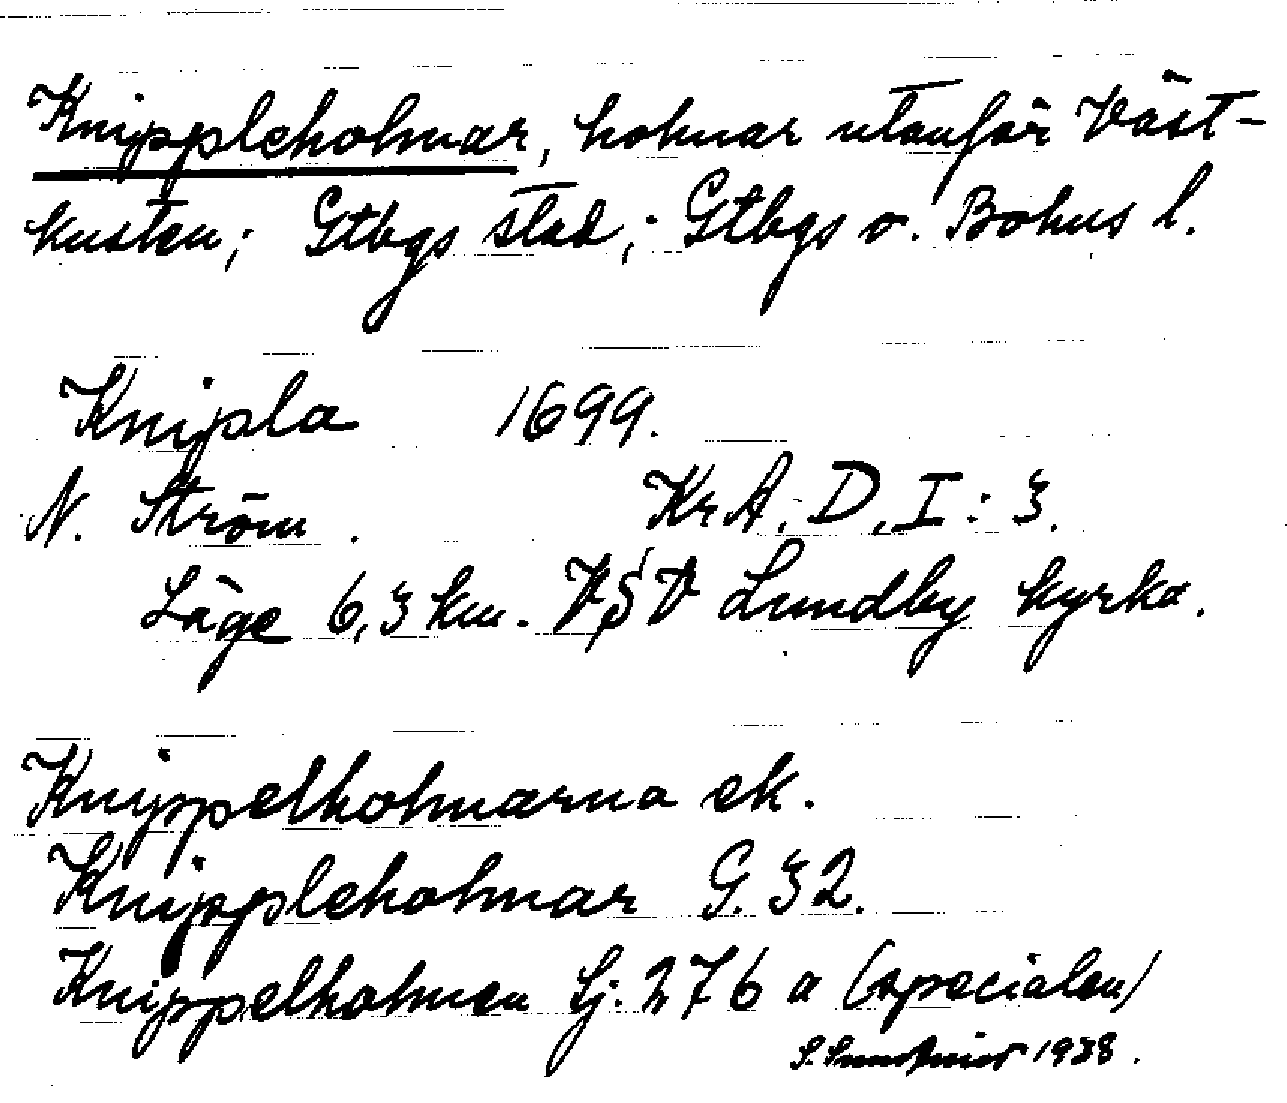 Knippleholmar, holmar utanför Väst-
kusten; Gtbgs stad; Gtbgs o. Bohus l.
Knipla 1699.
N. Ström. KrA, D, I: 3.
Läge 6,3 km. VSV Lundby kyrka.
Knippelholmarna ek.
Knippleholmar G. 32.
Knippelholmen Lj. 276 a (specialen)
S. 1938.